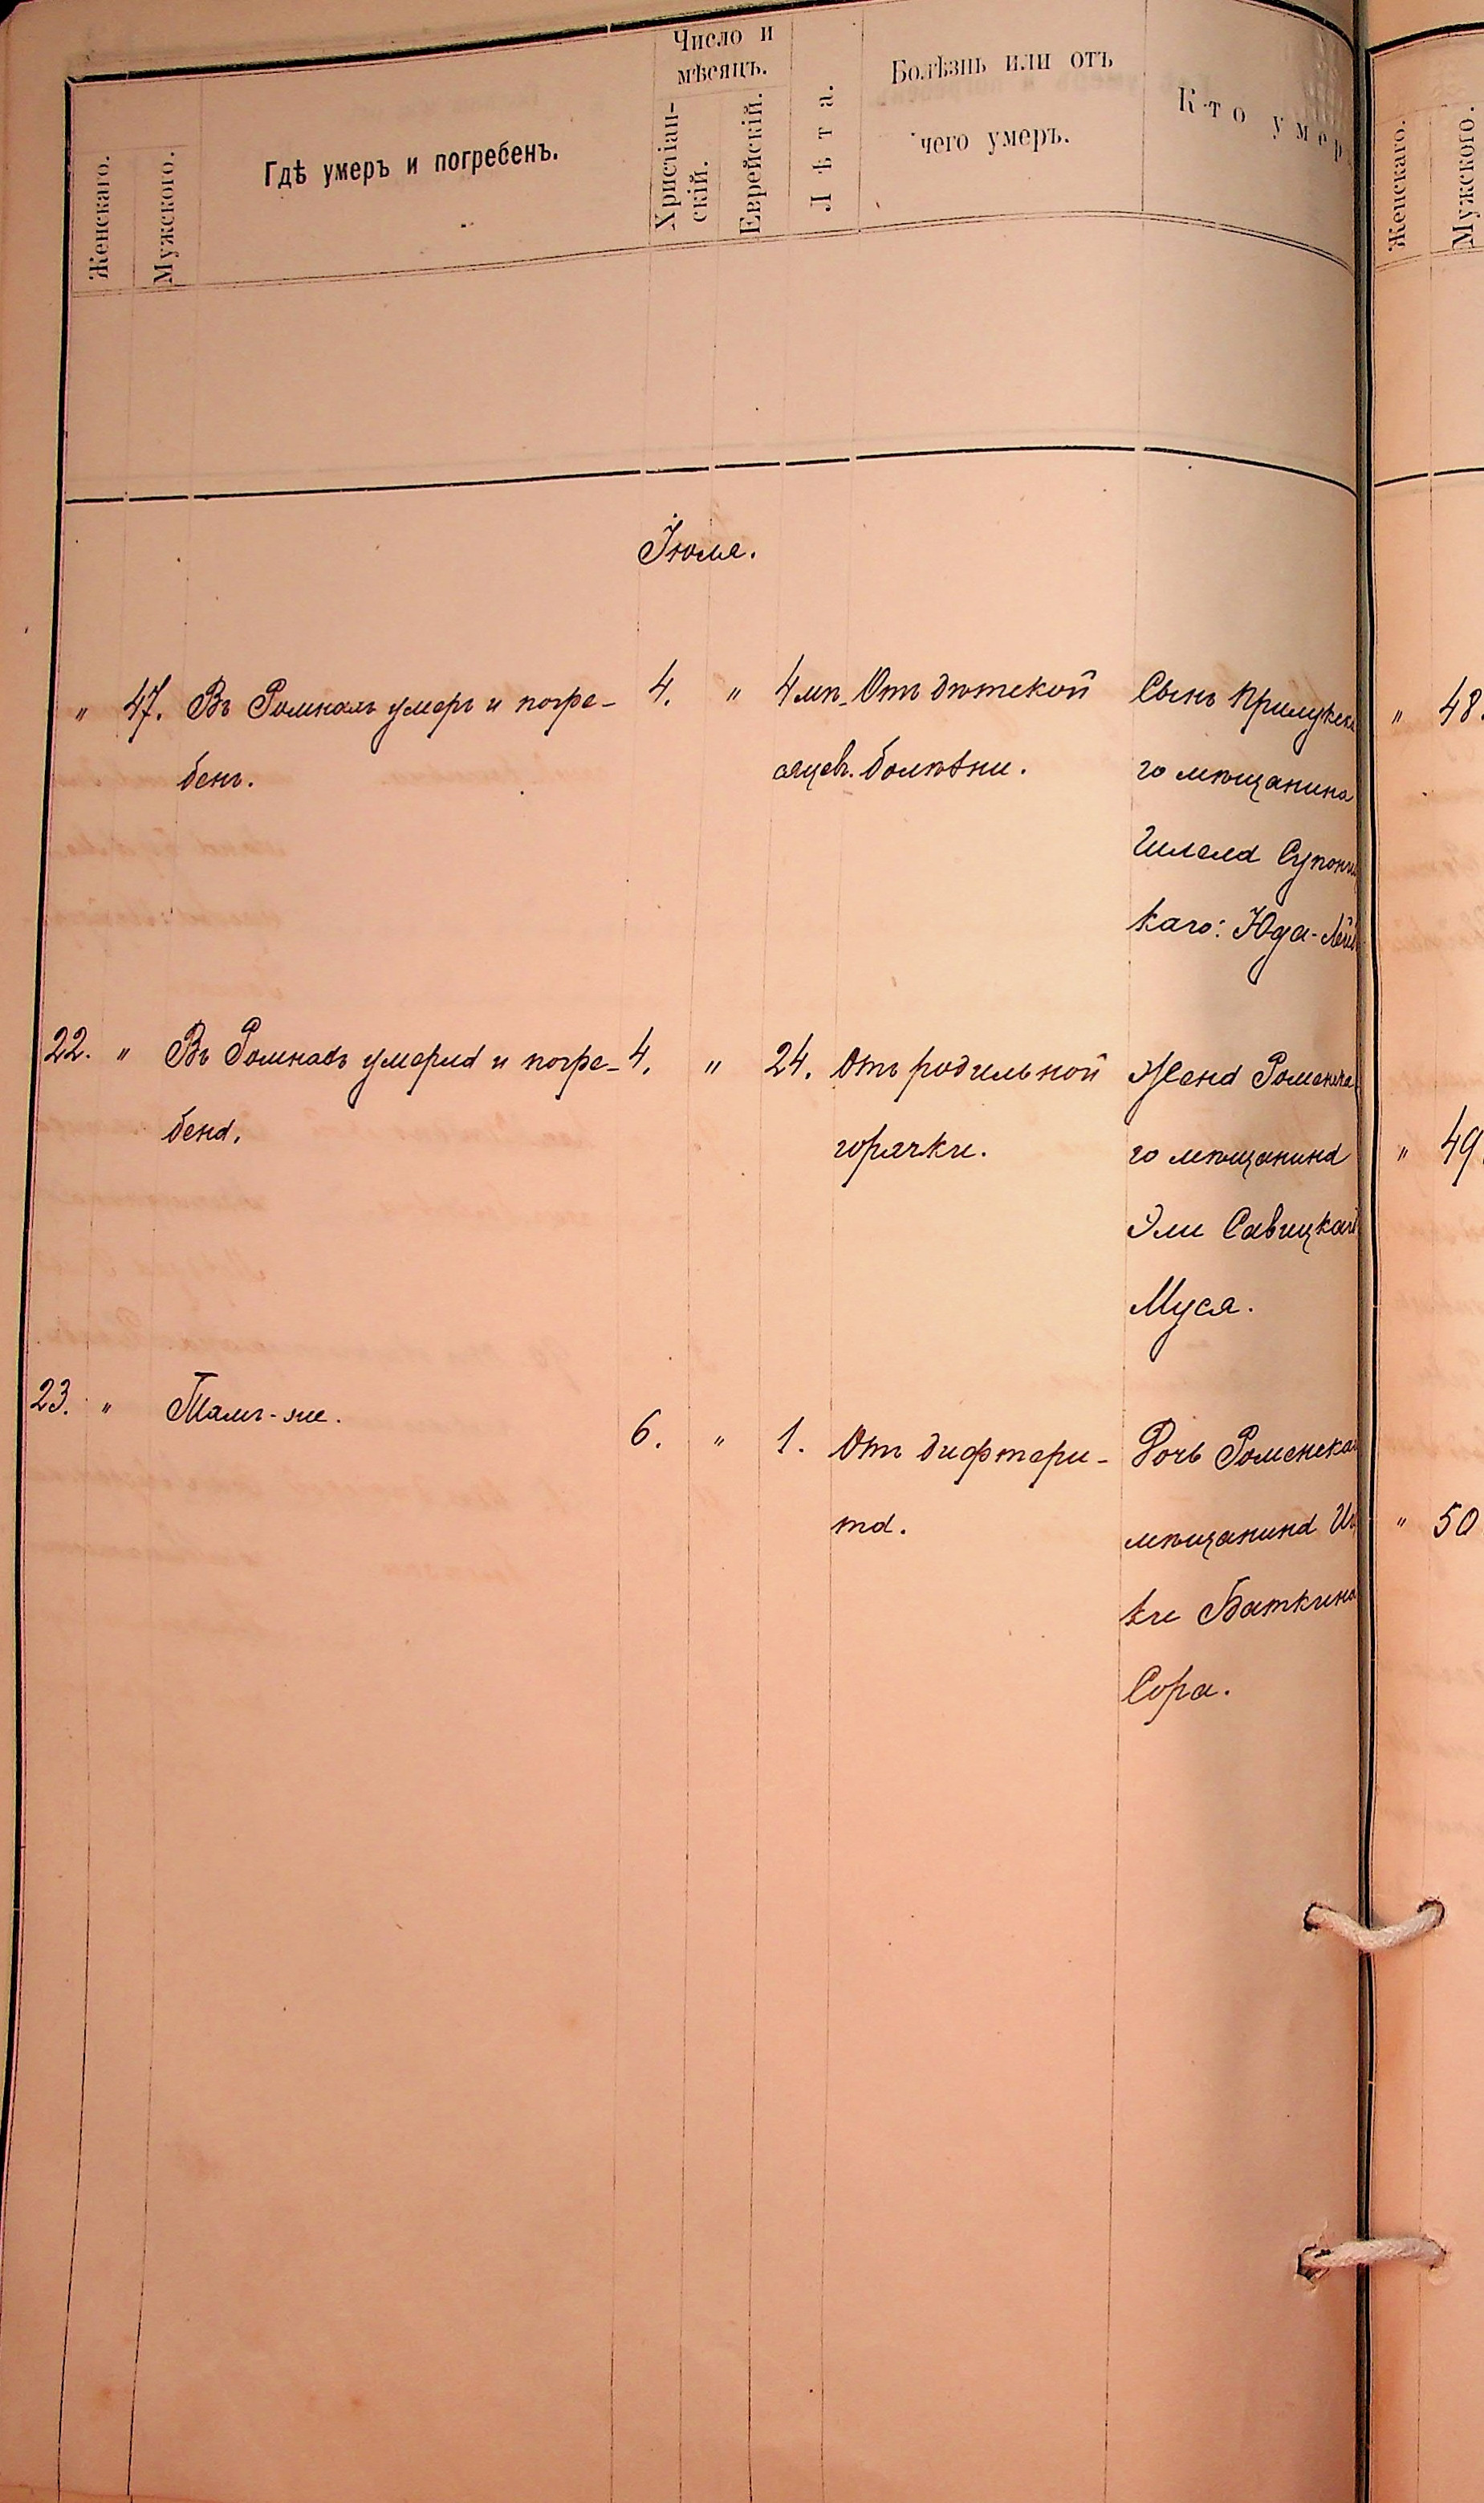 Женскаго.
Мужского.
Гдѣ умеръ и погребенъ.
Число и
мѣсяцъ.
Христіан-
скій.
Еврейскій.
Лѣта.
Болѣзнь или отъ
чего умеръ.
Кто умер
Женскаго.
Мужского.
Іюля.
" 47. Въ Ромнахъ умеръ и погре-
бенъ.
4. "
4 мѣ-
сяцев.
Отъ дѣтской
болѣзни.
Сынъ Прилукска
го мѣщанина
Гилеля
каго: Юда-Лей
22. " Въ Ромнахъ умерла и погре-
бена.
4. " 24. Отъ родильной
горячки.
Жена Роменска
го мѣщанина
Эли Савицкаго
Муся.
23. " Тамъ-же.
6. " 1. Отъ дифтери-
та.
Дочь Роменскаг
мѣщанина Иц
ки Баткина
Сора.
" 48.
" 49.
" 50